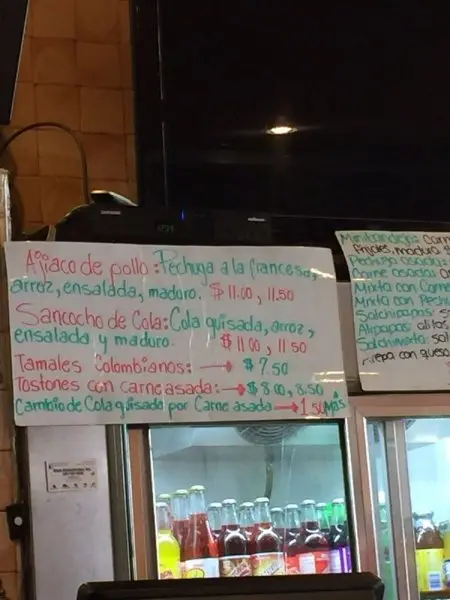 Ajiaco de pollo: Pechuga a la francesa,
arroz, ensalada, maduro. $11.00, 11.50
Sancocho de Cola: Cola guisada, arroz,
ensalada y maduro. $11.00, 11.50
Tamales Colombianos: → $7.50
Tostones con carne asada: → $8.00, 8.50
Cambio de Cola guisada por Carne asada → 1.50 Más
SAMSUNG
frijoles, maduro
Pechuga asada:
Carne asada:
Mixta con Carne
Mixta con Pech
Salchipapas:
Alipapas: alitas
Salchimixta: sal
arepa con queso